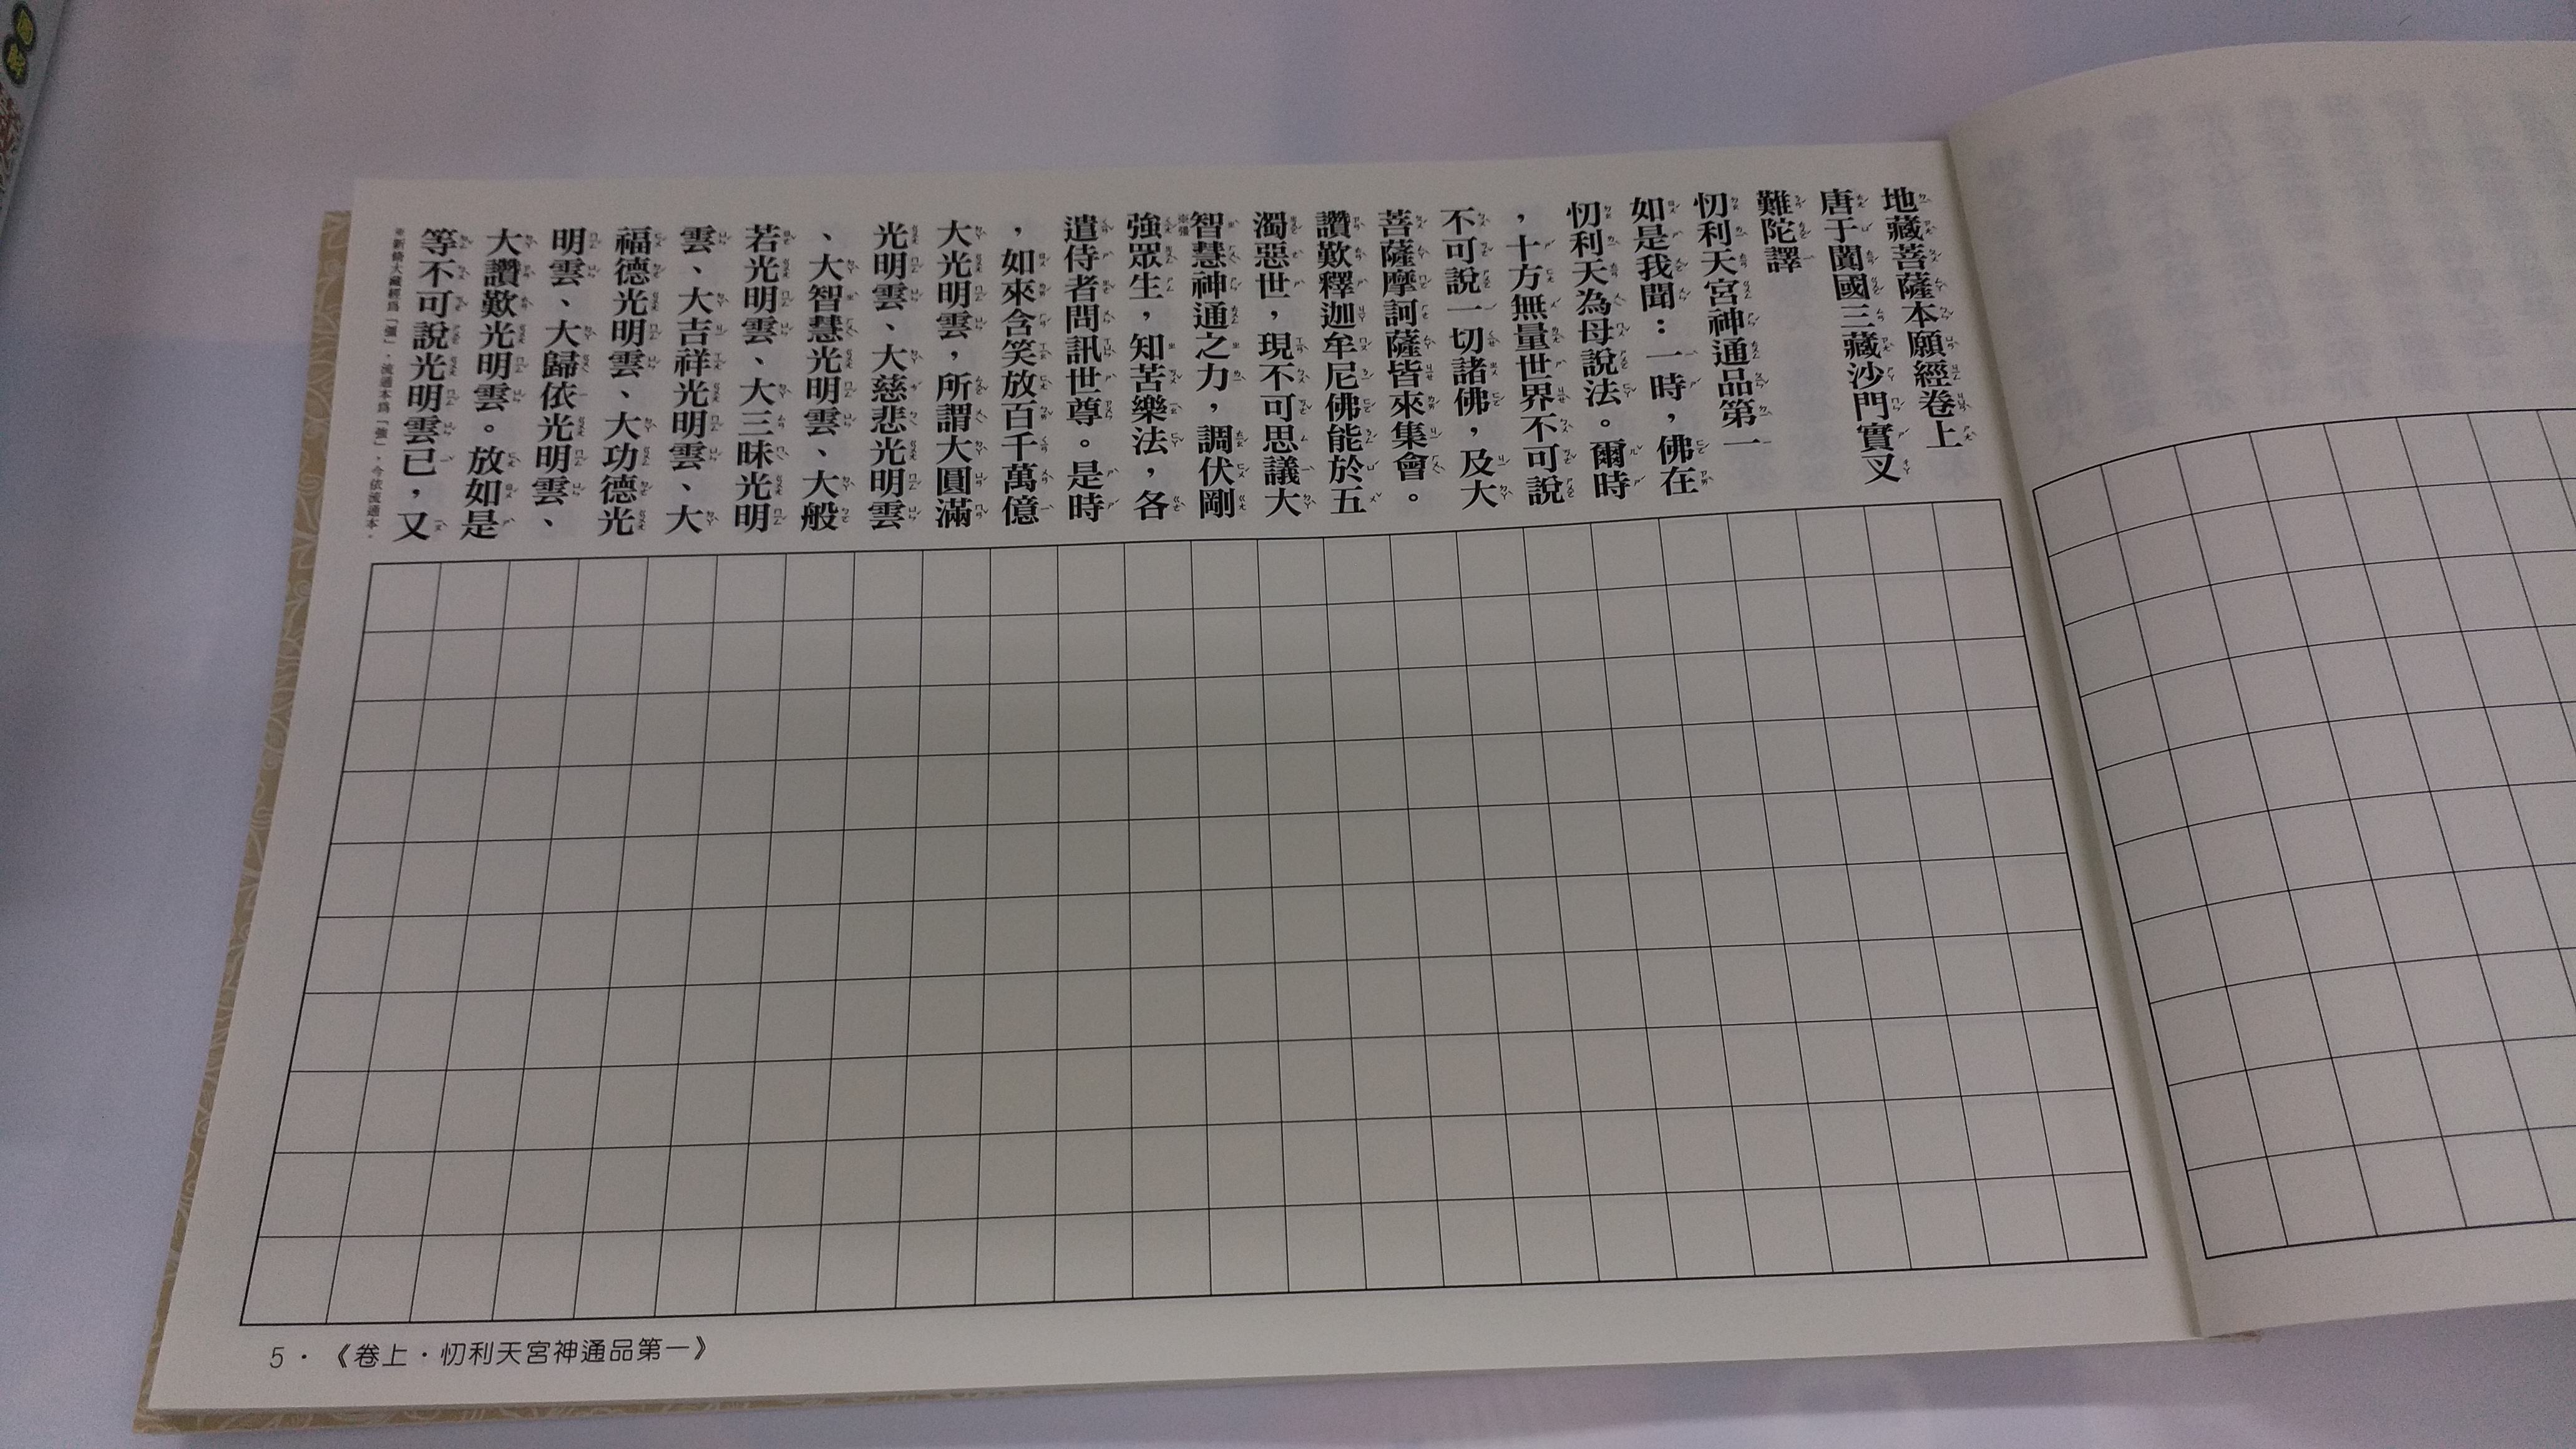 地藏菩薩本願經卷上
唐于闐國三藏沙門實叉
難陀譯
忉利天宮神通品第一
如是我聞：一時，佛在
忉利天為母說法。爾時
，十方無量世界不可說
不可說一切諸佛，及大
菩薩摩訶薩皆來集會。
讚歎釋迦牟尼佛能於五
濁惡世，現不可思議大
智慧神通之力，調伏剛
強眾生，知苦樂法，各
遣侍者問訊世尊。是時
，如來含笑放百千萬億
大光明雲，所謂大圓滿
光明雲、大慈悲光明雲
、大智慧光明雲、大般
若光明雲、大三昧光明
雲、大吉祥光明雲、大
福德光明雲、大功德光
明雲、大歸依光明雲、
大讚歎光明雲。放如是
等不可說光明雲已，又
5．《卷上．忉利天宮神通品第一》